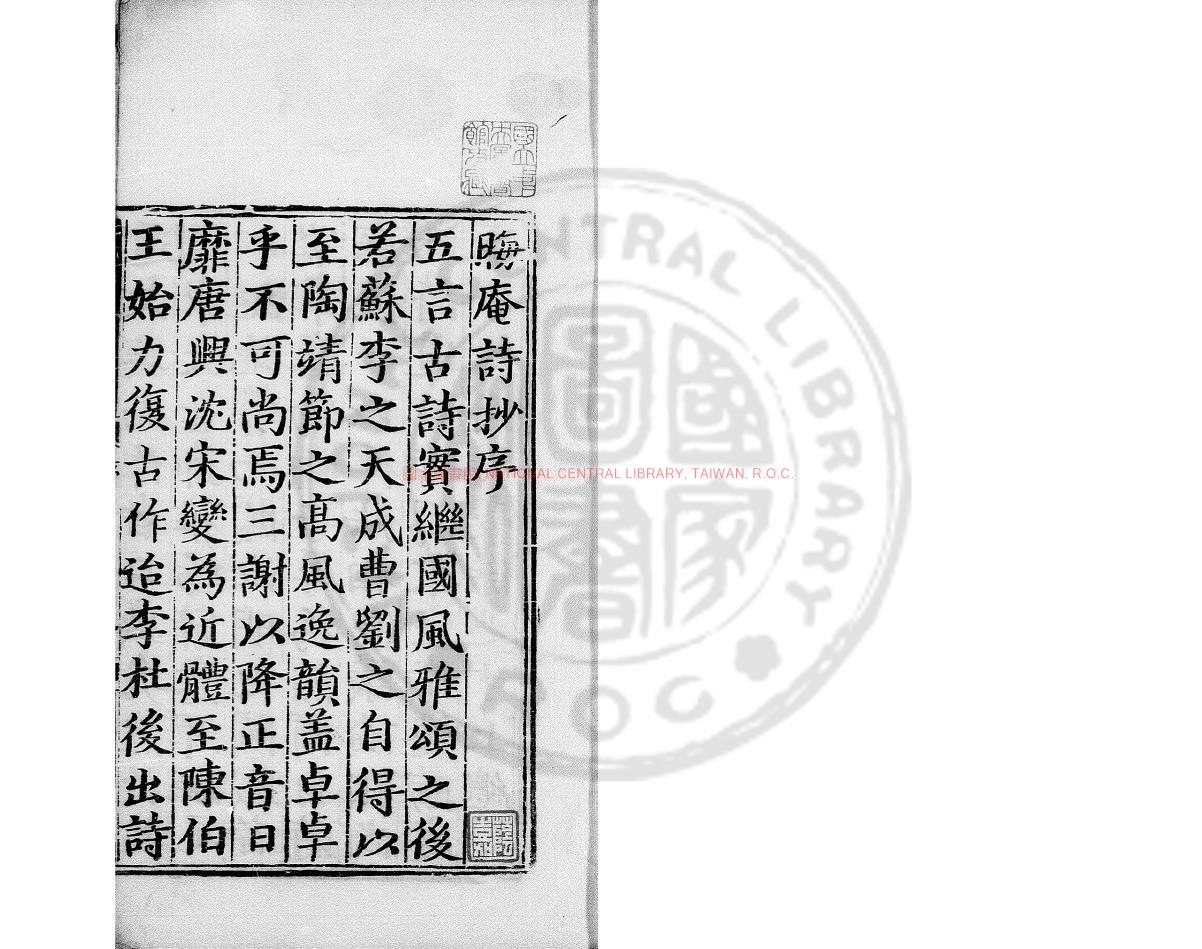 晦庵詩抄序
五言古詩實繼國風雅頌之後
若蘇李之天成曹劉之自得以
至陶靖節之高風逸韻盖卓卓
乎不可尚焉三謝以降正音日
靡唐興沈宋變為近體至陳伯
王始力復古作迨李杜後出詩
國家圖書館 NATIONAL CENTRAL LIBRARY, TAIWAN, R.O.C.
CENTRAL LIBRARY
ROC
國家圖書